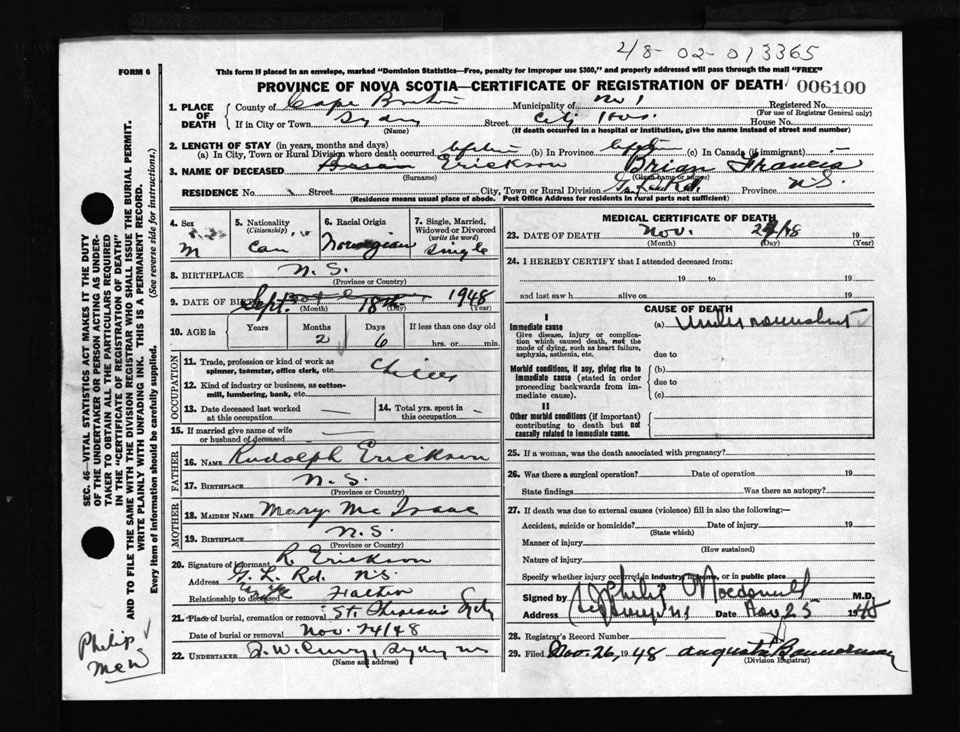 2/8-02-013365
FORM 6
This form if placed in an envelope, marked "Dominion Statistics—Free, penalty for improper use $300," and properly addressed will pass through the mail "FREE"
PROVINCE OF NOVA SCOTIA—CERTIFICATE OF REGISTRATION OF DEATH 006100
1. PLACE OF DEATH
County of Cape Breton Municipality of No 1 Registered No.
(For use of Registrar General only)
If in City or Town Sydney Street City Hos. House No.
(Name) (If death occurred in a hospital or institution, give the name instead of street and number)
2. LENGTH OF STAY (in years, months and days)
(a) In City, Town or Rural Division where death occurred (b) In Province (c) In Canada (if immigrant)
3. NAME OF DECEASED Erickson Brian Francis
(Surname) (Given name or names)
RESIDENCE No. Street City, Town or Rural Division Province N.S.
(Residence means usual place of abode. Post Office Address for residents in rural parts not sufficient)
4. Sex M
5. Nationality (Citizenship) Can
6. Racial Origin Norwegian
7. Single, Married, Widowed or Divorced (write the word) Single
8. BIRTHPLACE N.S.
(Province or Country)
9. DATE OF BIRTH Sept. 18th 1948
(Month) (Day) (Year)
10. AGE in Years Months 2 Days 6 If less than one day old hrs. or min.
OCCUPATION
11. Trade, profession or kind of work as spinner, teamster, office clerk, etc.
12. Kind of industry or business, as cotton-mill, lumbering, bank, etc.
13. Date deceased last worked at this occupation —
14. Total yrs. spent in this occupation —
15. If married give name of wife or husband of deceased —
FATHER
16. NAME Rudolph Erickson
17. BIRTHPLACE N.S.
(Province or Country)
MOTHER
18. MAIDEN NAME Mary Mc Isaac
19. BIRTHPLACE N.S.
(Province or Country)
20. Signature of informant R. Erickson
Address G. L. Rd. N.S.
Relationship to deceased Father
21. Place of burial, cremation or removal St. Theresa's Sydney
Date of burial or removal Nov. 24/48
22. UNDERTAKER Sydney NS
(Name and address)
MEDICAL CERTIFICATE OF DEATH
23. DATE OF DEATH Nov. 24/48 19
(Month) (Day) (Year)
24. I HEREBY CERTIFY that I attended deceased from:
19 to 19
and last saw h alive on 19
CAUSE OF DEATH
I
Immediate cause (a) Undernourishment
Give disease, injury or complication which caused death, not the mode of dying, such as heart failure, asphyxia, asthenia, etc.
due to
Morbid conditions, if any, giving rise to immediate cause (stated in order proceeding backwards from immediate cause).
(b)
due to
(c)
II
Other morbid conditions (if important) contributing to death but not causally related to immediate cause.
25. If a woman, was the death associated with pregnancy?
26. Was there a surgical operation? Date of operation 19
State findings Was there an autopsy?
27. If death was due to external causes (violence) fill in also the following:—
Accident, suicide or homicide? Date of injury 19
(State which)
Manner of injury
(How sustained)
Nature of injury
Specify whether injury occurred in industry, in home, or in public place
Signed by Philip Macdonald M.D.
Address Date Nov 25 1948
28. Registrar's Record Number
29. Filed Nov. 26, 1948 Augusta Bannerman
(Division Registrar)
SEC. 46—VITAL STATISTICS ACT MAKES IT THE DUTY
OF THE UNDERTAKER OR PERSON ACTING AS UNDER-
TAKER TO OBTAIN ALL THE PARTICULARS REQUIRED
IN THE "CERTIFICATE OF REGISTRATION OF DEATH"
AND TO FILE THE SAME WITH THE DIVISION REGISTRAR WHO SHALL ISSUE THE BURIAL PERMIT.
WRITE PLAINLY WITH UNFADING INK. THIS IS A PERMANENT RECORD.
Every item of information should be carefully supplied. (See reverse side for instructions.)
Philip